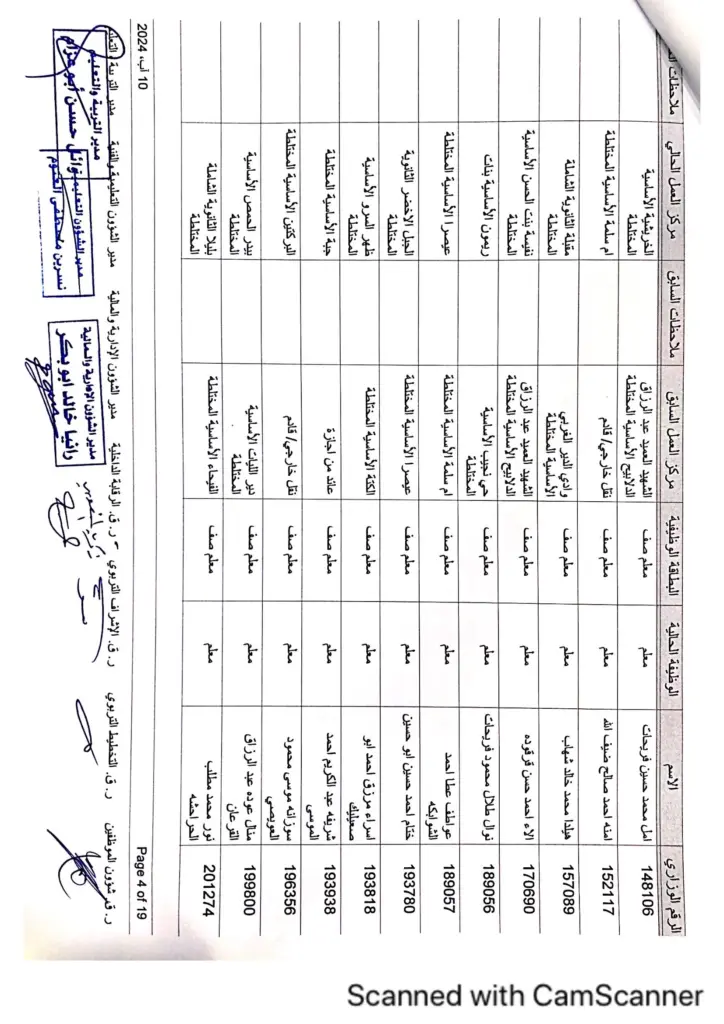 الرقم الوزاري الاسم الوظيفة الحالية البطاقة الوظيفية مركز العمل السابق ملاحظات السابق مركز العمل الحالي ملاحظات
148106 امل محمد حسين فريحات معلم معلم صف الشهيد العميد عبد الرزاق الخريشية الأساسية
الدلابيح الأساسية المختلطة المختلطة
152117 امنه احمد صالح ضيف الله معلم معلم صف نقل خارجي/ قادم ام سلمة الأساسية المختلطة
157089 هيلدا محمد خالد شهاب معلم معلم صف وادي الدير الغربي مقبلة الثانوية الشاملة
الأساسية المختلطة المختلطة
170690 الاء احمد حسن قرقوده معلم معلم صف الشهيد العميد عبد الرزاق نفيسة بنت الحسن الأساسية
الدلابيح الأساسية المختلطة المختلطة
189056 نوال طلال محمود فريحات معلم معلم صف حي نجيب الأساسية ريمون الأساسية بنات
المختلطة
189057 عواطف عطا احمد معلم معلم صف ام سلمة الأساسية المختلطة عيصرا الأساسية المختلطة
الشوابكه
193780 ختام احمد حسين ابو حسين معلم معلم صف عيصرا الأساسية المختلطة الجبل الاخضر الثانوية
المختلطة
193818 اسراء مرزق احمد ابو معلم معلم صف الكتة الأساسية المختلطة ظهر السرو الأساسية
صعيليك المختلطة
193938 شريفه عبد الكريم احمد معلم معلم صف عائد من اجازة جبة الأساسية المختلطة
الموسى
196356 سوزانه موسى محمود معلم معلم صف نقل خارجي/ قادم البركتين الأساسية المختلطة
العويصي
199800 منال عوده عبد الرزاق معلم معلم صف دير الليات الأساسية بيدر الحمص الأساسية
القرعان المختلطة المختلطة
201274 نور محمد مطلب معلم معلم صف الفيحاء الأساسية المختلطة بليلا الثانوية الشاملة
الحراحشه المختلطة
Page 4 of 19 10 آب، 2024
ر. ق. شؤون الموظفين ر. ق. التخطيط التربوي ر. ق. الإشراف التربوي ر. ق. الرقابة الداخلية مدير الشؤون الإدارية والمالية مدير الشؤون التعليمية والفنية مدير التربية والتعليم
مدير الشؤون الإدارية والمالية
رانيا خالد ابو بكر
مدير الشؤون التعليمية
نسرين مصطفى العتوم
مدير التربية والتعليم
وائل حسن أبو عزام
Scanned with CamScanner